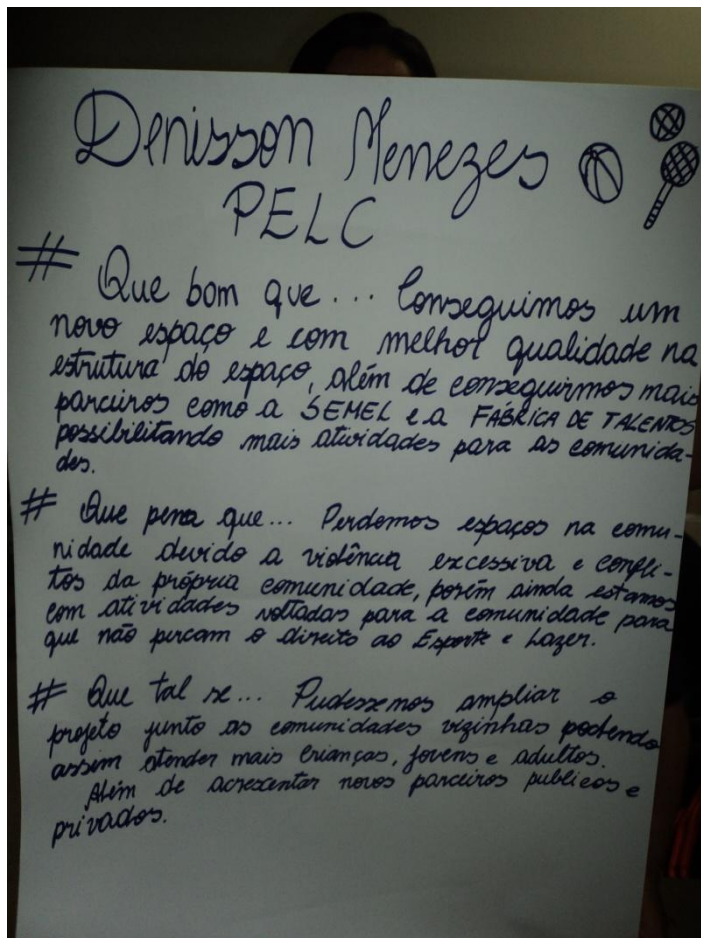 Denisson Menezes
PELC
# Que bom que... Conseguimos um
novo espaço e com melhor qualidade na
estrutura do espaço, além de conseguirmos mais
parceiros como a SEMEL e a FÁBRICA DE TALENTOS
possibilitando mais atividades para as comunida-
des.
# Que pena que... Perdemos espaços na comu-
nidade devido a violência excessiva e confli-
tos da própria comunidade, porém ainda estamos
com atividades voltadas para a comunidade para
que não percam o direito ao Esporte e Lazer.
# Que tal se... Pudessemos ampliar o
projeto junto as comunidades vizinhas podendo
assim atender mais crianças, jovens e adultos.
Além de acrescentar novos parceiros publicos e
privados.